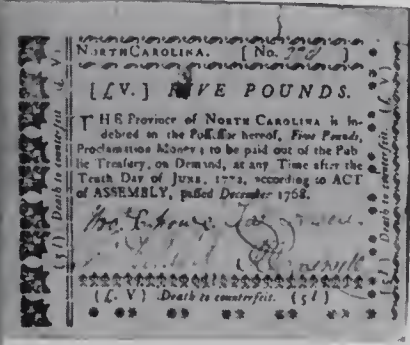 NORTH CAROLINA. [ No. ]
[ £ V. ] FIVE POUNDS.
THE Province of NORTH CAROLINA is in-
debted to the Possessor hereof, Five Pounds,
Proclamation Money; to be paid out of the Pub-
lic Treasury, on Demand, at any Time after the
Tenth Day of JUNE, 1772, according to ACT
of ASSEMBLY, passed December 1768.
( £. V ) Death to counterfeit. ( 5 l )
( 5 l ) Death to counterfeit ( £ V )
( 5 l ) Death to counterfeit. ( £ V )